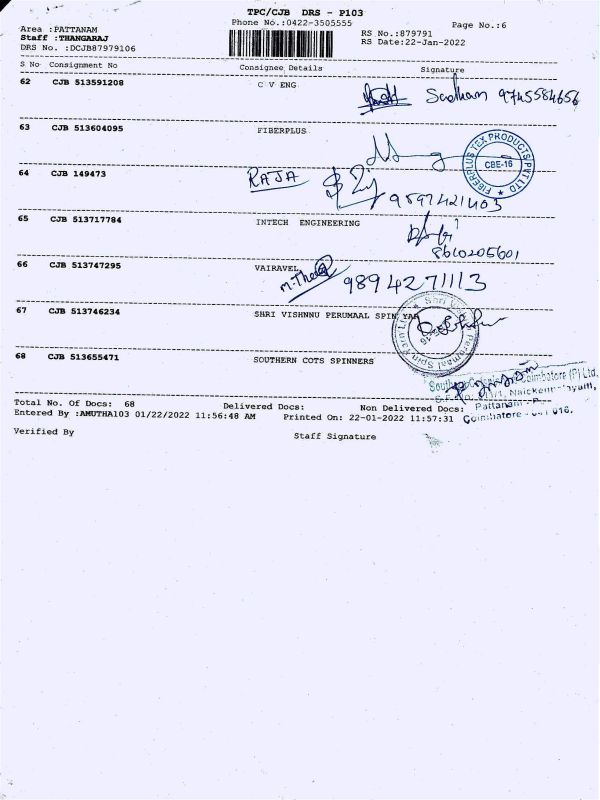 TPC/CJB DRS - P103
Phone No.:0422-3505555
Page No.:6
Area :PATTANAM
RS No.:879791
Staff :THANGARAJ
RS Date:22-Jan-2022
DRS No. :DCJB87979106
S No Consignment No Consignee Details Signature
62 CJB 513591208 C V ENG
Sadham 9745584656
63 CJB 513604095 FIBERPLUS
FIBERPLUS TEX PRODUCTS PVT LTD
CBE-16
64 CJB 149473 RAJA
9597421403
65 CJB 513717784 INTECH ENGINEERING
8610205601
66 CJB 513747295 VAIRAVEL
9894271113
67 CJB 513746234 SHRI VISHNNU PERUMAAL SPIN YAR
68 CJB 513655471 SOUTHERN COTS SPINNERS
Coimbatore (P) Ltd.
Pattanam - P
Coimbatore - 641 016.
Total No. Of Docs: 68 Delivered Docs: Non Delivered Docs:
Entered By :AMUTHA103 01/22/2022 11:56:48 AM Printed On: 22-01-2022 11:57:31
Verified By Staff Signature